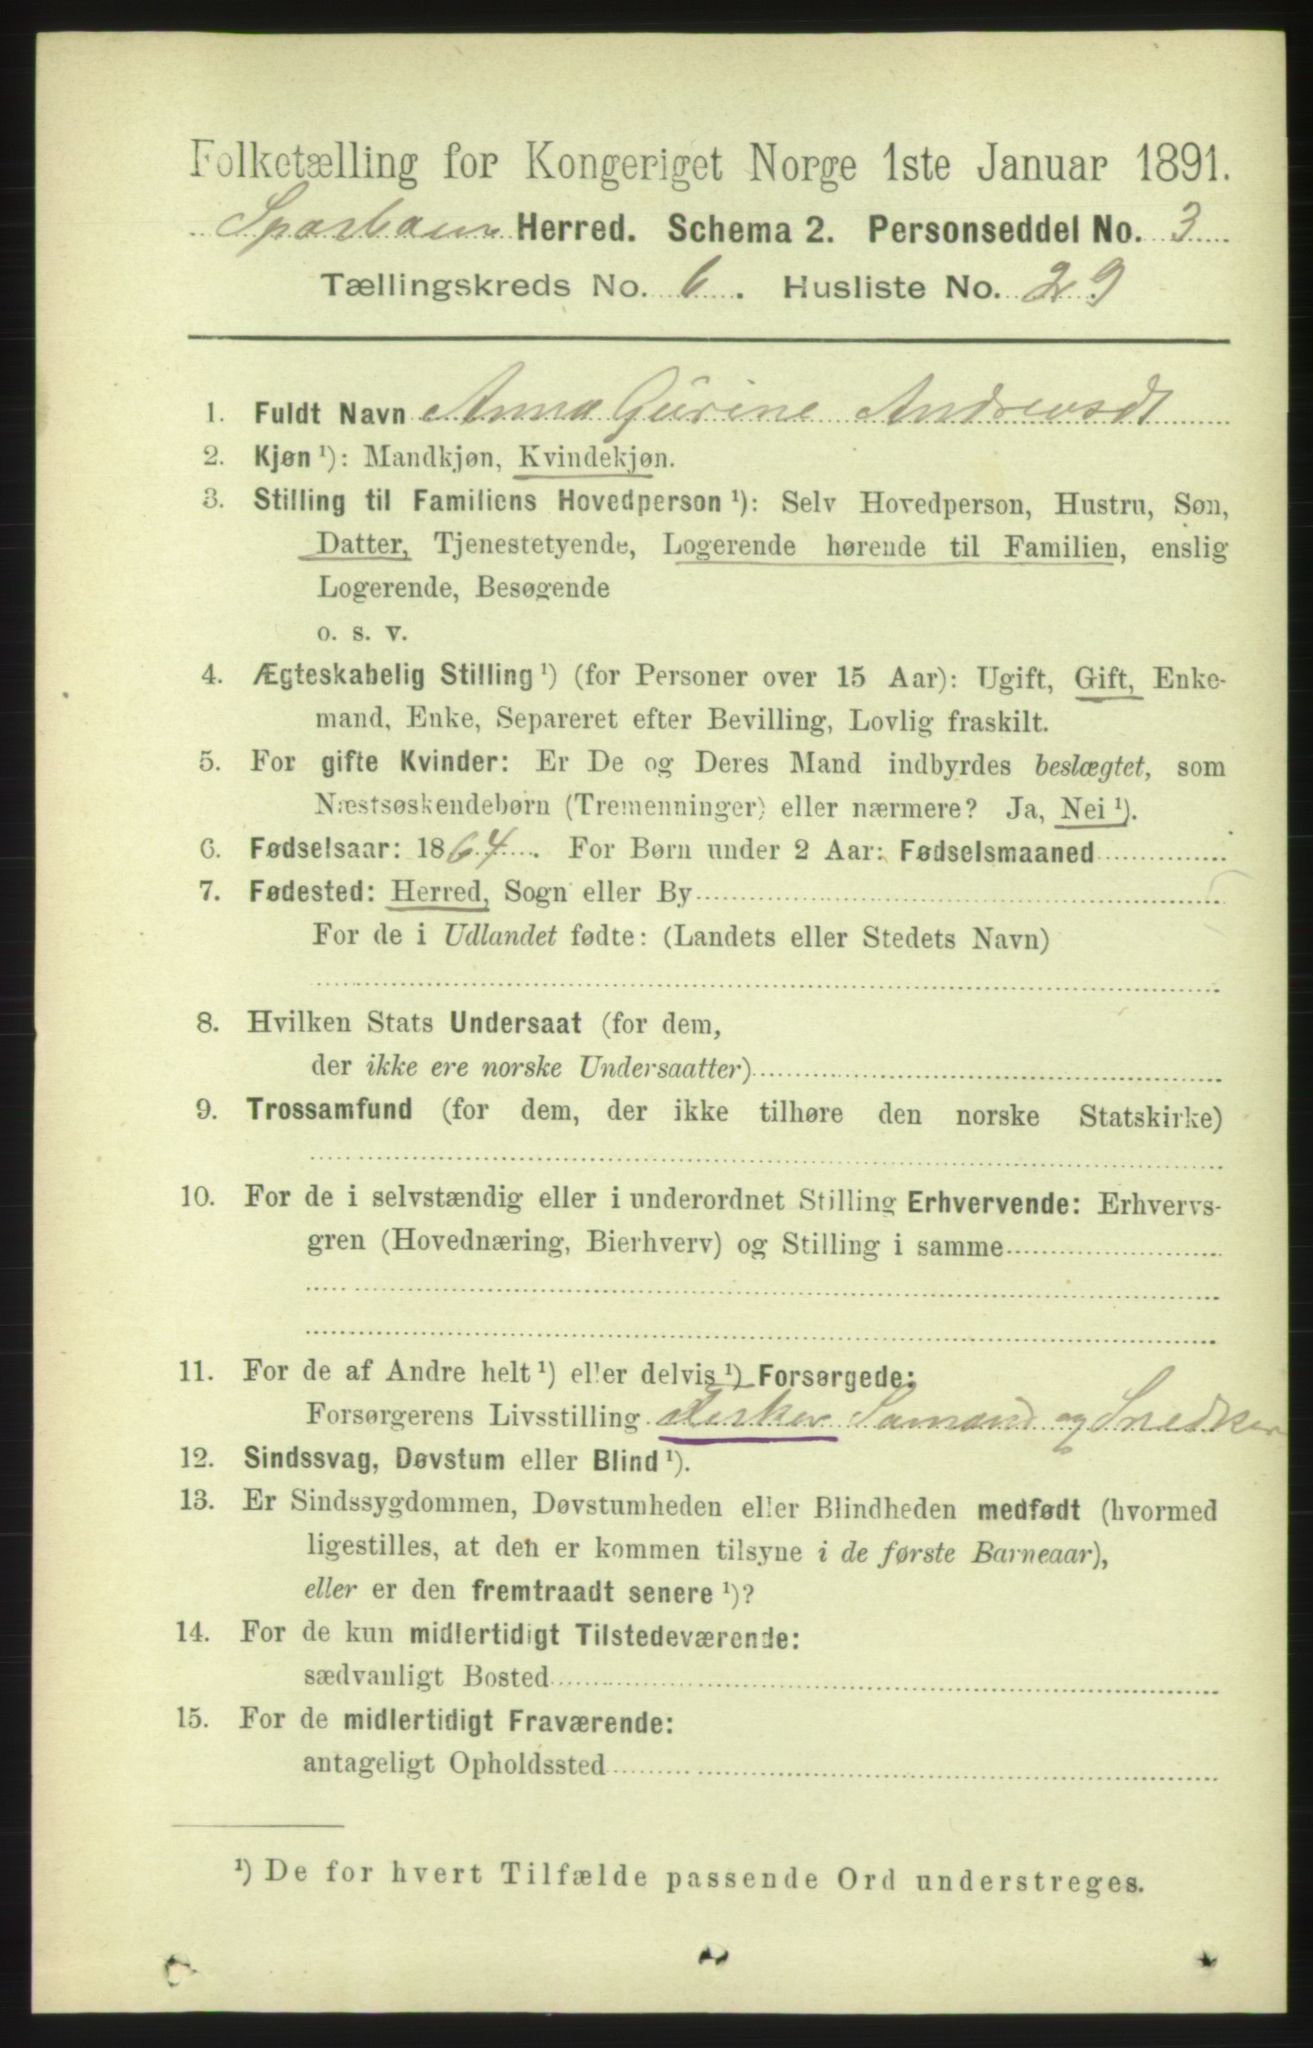 Folketælling for Kongeriget Norge 1ste Januar 1891.
Herred. Schema 2. Personseddel No. 3
Tællingskreds No. 6. Husliste No. 29
1. Fuldt Navn Anna Gurine Andreasdt
2. Kjøn ¹): Mandkjøn, Kvindekjøn.
3. Stilling til Familiens Hovedperson ¹): Selv Hovedperson, Hustru, Søn,
Datter, Tjenestetyende, Logerende hørende til Familien, enslig
Logerende, Besøgende
o. s. v.
4. Ægteskabelig Stilling ¹) (for Personer over 15 Aar): Ugift, Gift, Enke-
mand, Enke, Separeret efter Bevilling, Lovlig fraskilt.
5. For gifte Kvinder: Er De og Deres Mand indbyrdes beslægtet, som
Næstsøskendebørn (Tremenninger) eller nærmere? Ja, Nei ¹).
6. Fødselsaar: 1864. For Børn under 2 Aar: Fødselsmaaned
7. Fødested: Herred, Sogn eller By
For de i Udlandet fødte: (Landets eller Stedets Navn)
8. Hvilken Stats Undersaat (for dem,
der ikke ere norske Undersaatter)
9. Trossamfund (for dem, der ikke tilhøre den norske Statskirke)
10. For de i selvstændig eller i underordnet Stilling Erhvervende: Erhvervs-
gren (Hovednæring, Bierhverv) og Stilling i samme
11. For de af Andre helt ¹) eller delvis ¹) Forsørgede:
Forsørgerens Livsstilling Fisker Sømand og Snedker
12. Sindssvag, Døvstum eller Blind ¹).
13. Er Sindssygdommen, Døvstumheden eller Blindheden medfødt (hvormed
ligestilles, at den er kommen tilsyne i de første Barneaar),
eller er den fremtraadt senere ¹)?
14. For de kun midlertidigt Tilstedeværende:
sædvanligt Bosted
15. For de midlertidigt Fraværende:
antageligt Opholdssted
¹) De for hvert Tilfælde passende Ord understreges.